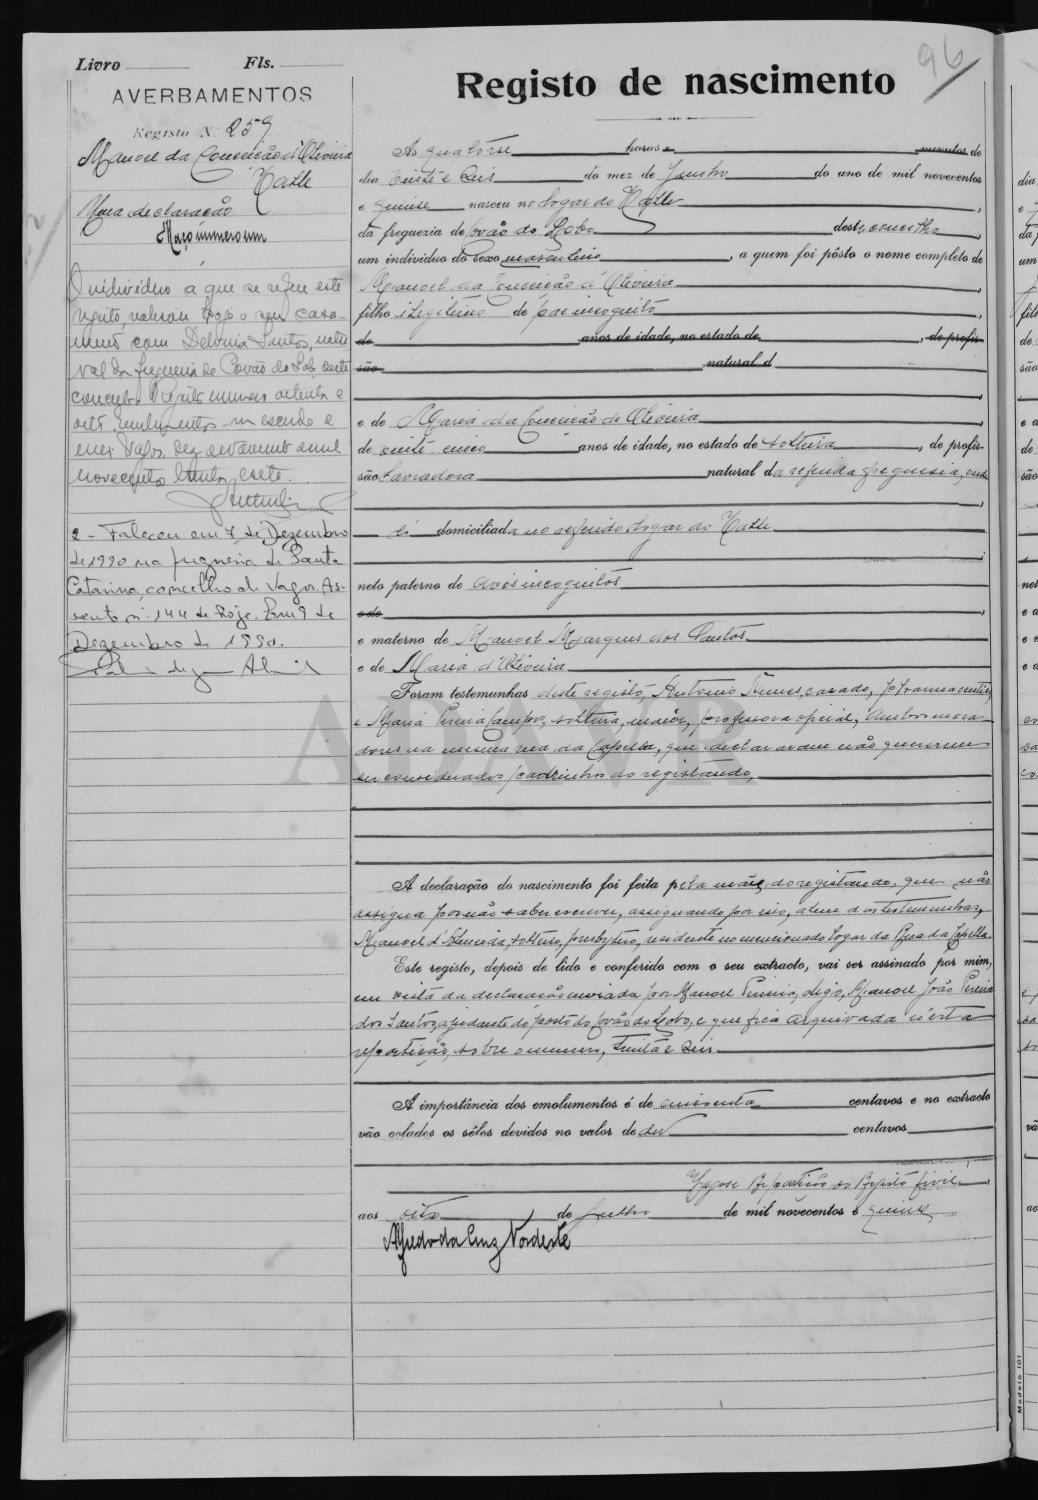 96
Livro Fls.
AVERBAMENTOS
Registo N.º 259
Manoel da Conceição d'Oliveira
Valle
Uma declaração
Maço numero um
O individuo a que se refere este
registo, realisou hoje o seu casa-
mento com Delmina Santos, neste
val da freguesia de Covão do Lobo, deste
concelho. Registo numero oitenta e
oito. Emolumentos um escudo e
Vagos, dez de novembro mil
novecentos trinta e sete.
2 - Faleceu em 7 de Dezembro
de 1990 na freguesia de Santa
Catarina, concelho de Vagos. As-
sento n.º 144 de hoje. Em 9 de
Dezembro de 1990.
Registo de nascimento
Ás quatorse horas e minutos do
dia vinte e seis do mez de Junho do ano de mil novecentos
e quinse nasceu no logar do Valle
da freguezia de Covão do Lobo deste concelho
um individuo do sexo masculino, a quem foi pôsto o nome completo de
Manoel da Conceição d'Oliveira
filho ilegitimo de pae incognito
de anos de idade, no estado de, de profis-
são natural d
e de Maria da Conceição de Oliveira
de vinte cinco anos de idade, no estado de solteira, de profis-
são lavradora natural da referida freguesia, onde
é domiciliada no referido logar do Valle
neto paterno de avós incognitos
e de
e materno de Manoel Marques dos Santos
e de Maria d'Oliveira
Foram testemunhas deste registo, Antonio Nunes, casado, farmaceutico,
e Maria Pereira Campos, solteira, maior, professora oficial, ambos mora-
dores na mesma rua da Capella, que declararam não quererem
ser considerados padrinhos do registando,
A declaração do nascimento foi feita pela mãe do registando, que não
assigna por não saber escrever, assignando por isso, alem das testemunhas,
Manoel d'Almeida, solteiro, presbytero, residente no mencionado logar da Rua da Capella.
Este registo, depois de lido e conferido com o seu extracto, vai ser assinado por mim,
em vista da declaração enviada por Manoel Pereira, digo, Manoel João Pereira
dos Santos, ajudante do posto do Covão do Lobo, e que fica arquivada n'esta
repartição, sobre o numero, trinta e seis
A importância dos emolumentos é de cincoenta centavos e no extracto
vão colados os sêlos devidos no valor de dez centavos
Vagos e Repartição do Registo Civil
aos oito de Julho de mil novecentos e quinse
Alfredo da Cruz Nordeste
ADAVR
Modelo 101